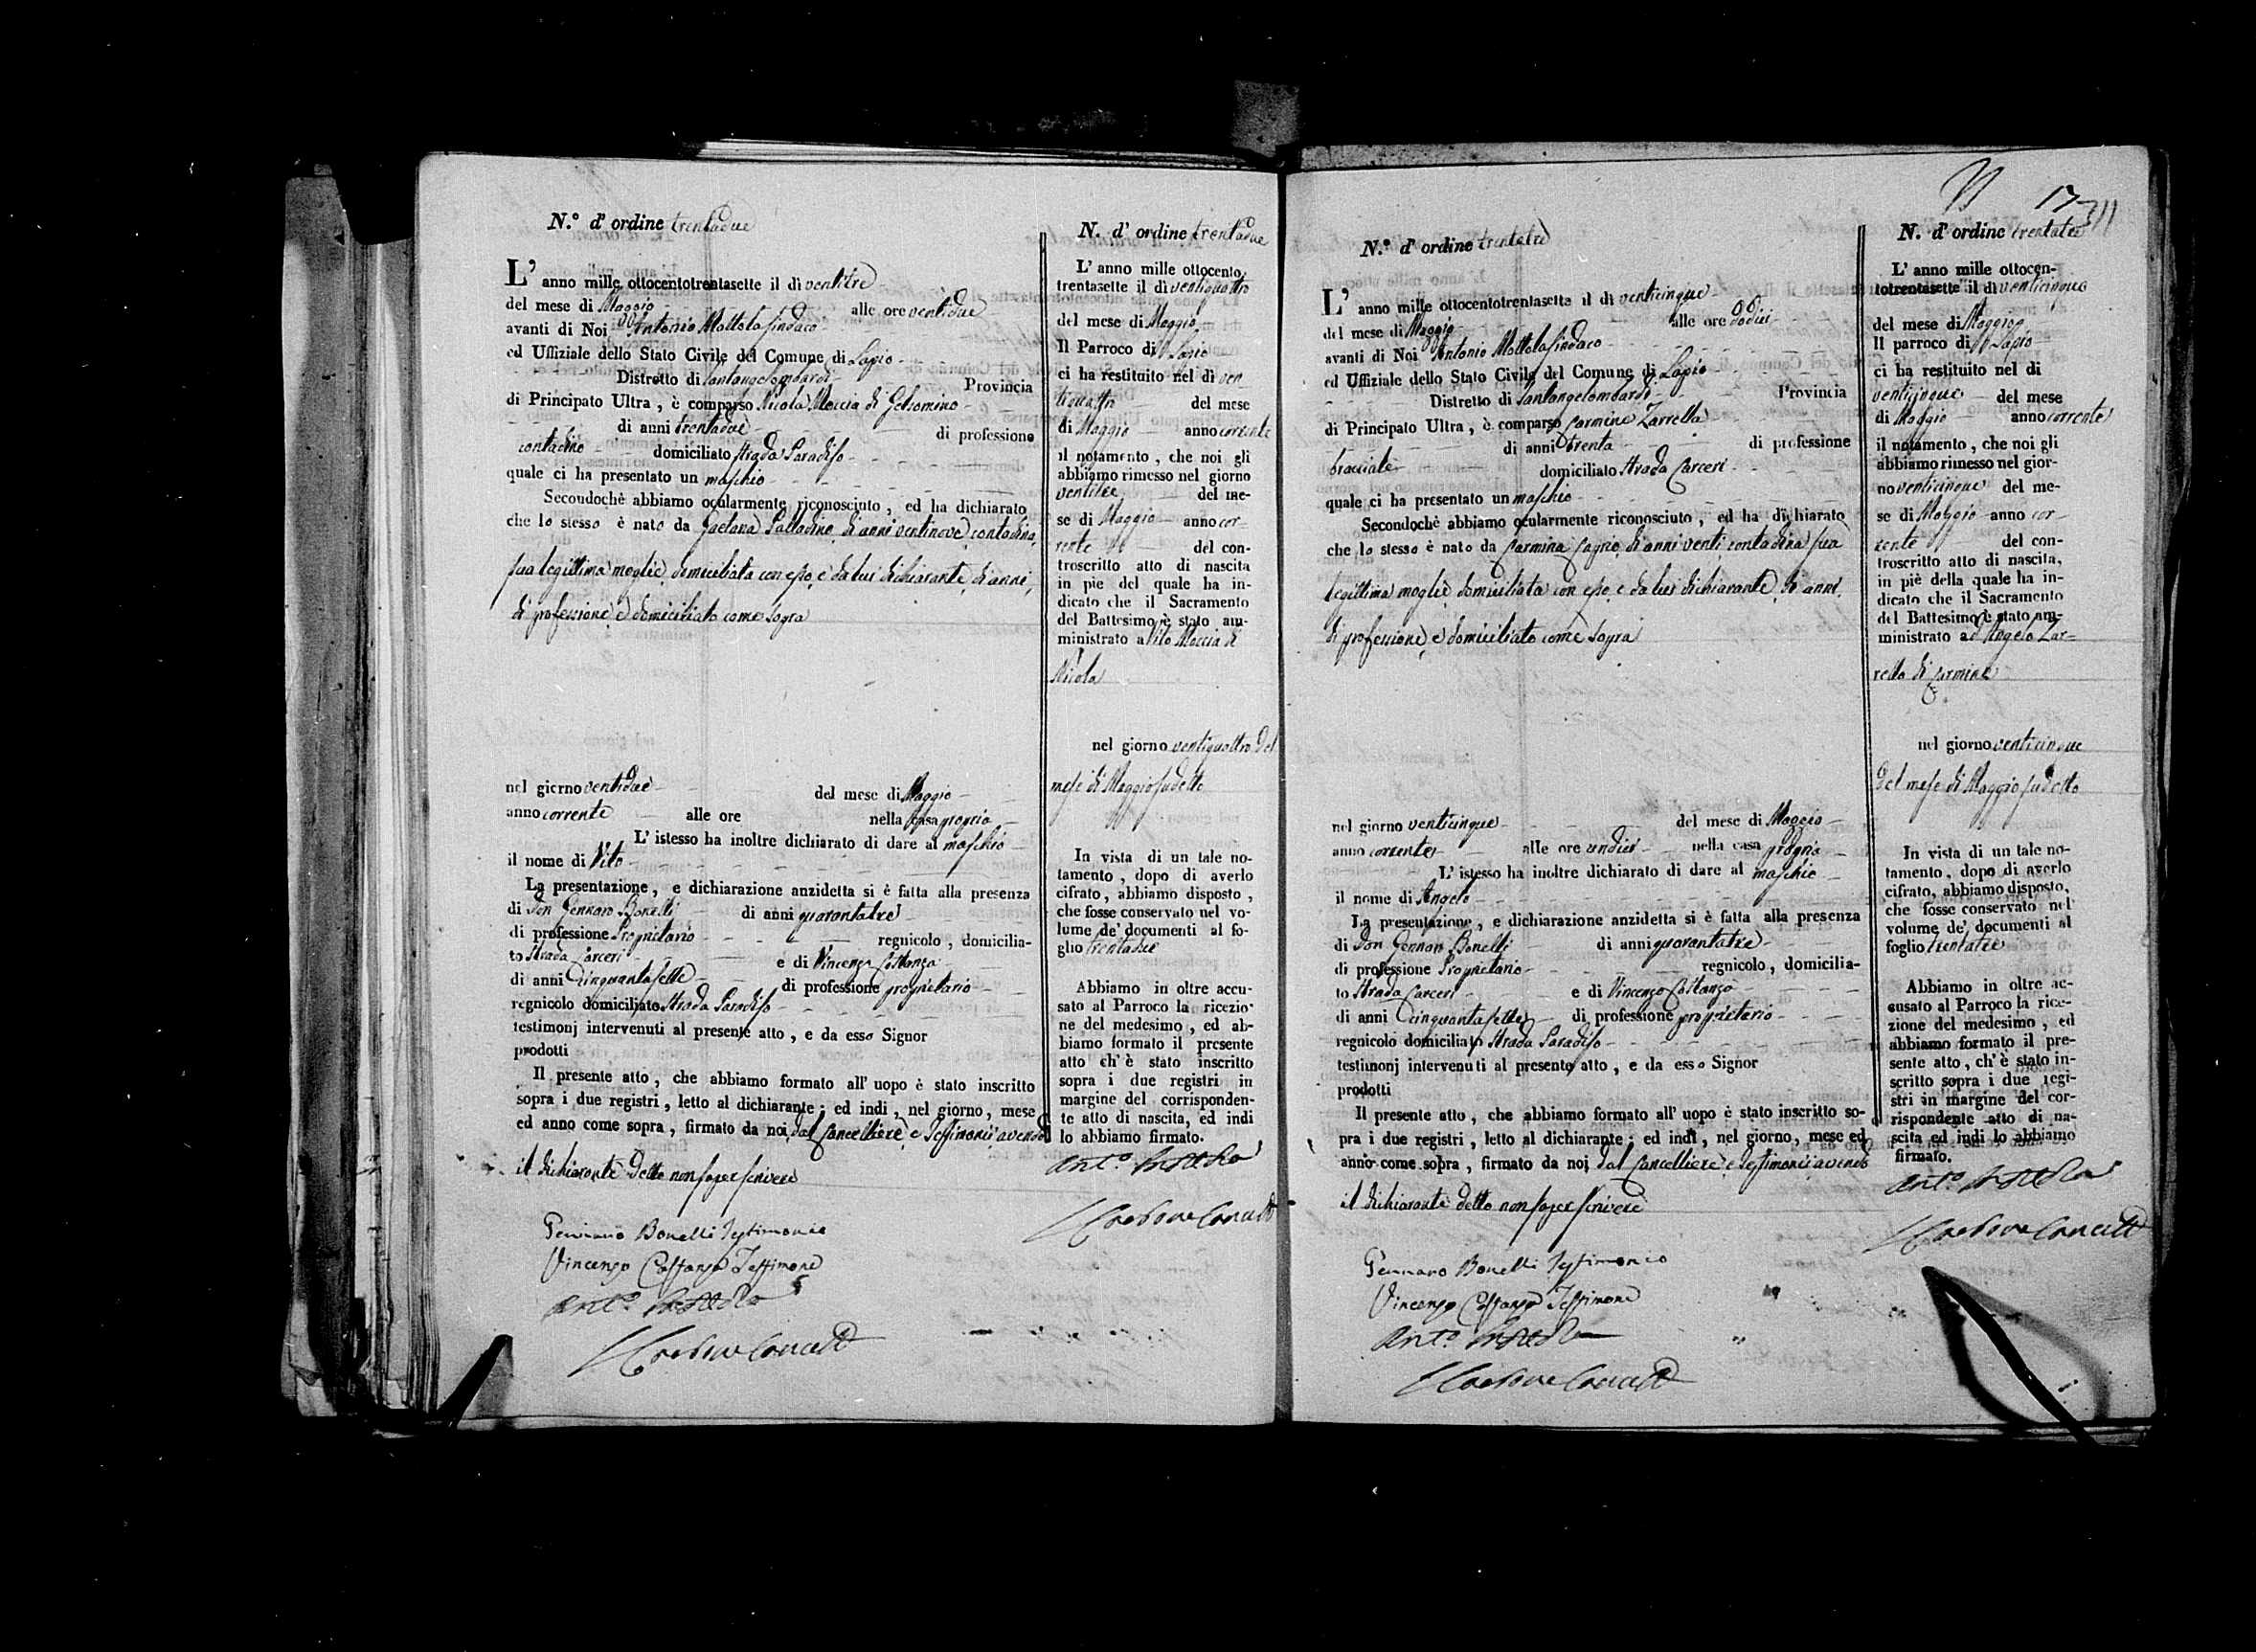 N.° d' ordine trentadue
L' anno mille ottocentotrentasette il dì ventitre
del mese di Maggio alle ore ventidue
avanti di Noi Antonio Mottola Sindaco
ed Uffiziale dello Stato Civile del Comune di Lapio
Distretto di Santangelombardi Provincia
di Principato Ultra, è comparso Nicola Moccia di Gelsomino
di anni trentadue di professione
contadino domiciliato Strada Paradiso
quale ci ha presentato un maschio
Secondochè abbiamo ocularmente riconosciuto, ed ha dichiarato
che lo stesso è nato da Gaetana Palladino, di anni ventinove, contadina,
sua legittima moglie, domiciliata con esso, e da lui dichiarante, di anni,
di professione, e domiciliato come sopra
nel giorno ventidue del mese di Maggio
anno corrente alle ore nella casa propria
L' istesso ha inoltre dichiarato di dare al maschio
il nome di Vito
La presentazione, e dichiarazione anzidetta si è fatta alla presenza
di Don Gennaro Bonelli di anni quarantatre
di professione Proprietario regnicolo, domicilia-
to Strada Carceri e di Vincenzo Costanzo
di anni cinquantasette di professione proprietario
regnicolo domiciliato Strada Paradiso
testimonj intervenuti al presente atto, e da esso Signor
prodotti
Il presente atto, che abbiamo formato all' uopo è stato inscritto
sopra i due registri, letto al dichiarante; ed indi, nel giorno, mese
ed anno come sopra, firmato da noi, dal Cancelliere, e Testimonii avendo
il dichiarante detto non saper scrivere
Gennaro Bonelli Testimonio
Vincenzo Costanzo Testimone
Ant.° Mottola
N. d' ordine trentadue
L' anno mille ottocento
trentasette il dì ventiquattro
del mese di Maggio
Il Parroco di Lapio
ci ha restituito nel dì ven
tiquattro del mese
di Maggio anno corrente
il notamento, che noi gli
abbiamo rimesso nel giorno
ventitre del me-
se di Maggio anno cor-
rente del con-
troscritto atto di nascita
in piè del quale ha in-
dicato che il Sacramento
del Battesimo è stato am-
ministrato a Vito Moccia di
Nicola
nel giorno ventiquattro del
mese di Maggio sudetto
In vista di un tale no-
tamento, dopo di averlo
cifrato, abbiamo disposto,
che fosse conservato nel vo-
lume de' documenti al fo-
glio trentadue
Abbiamo in oltre accu-
sato al Parroco la ricezio-
ne del medesimo, ed ab-
biamo formato il presente
atto ch' è stato inscritto
sopra i due registri in
margine del corrisponden-
te atto di nascita, ed indi
lo abbiamo firmato.
Ant.° Mottola
17
N.° d' ordine trentatre
L' anno mille ottocentotrentasette il dì venticinque
del mese di Maggio alle ore dodici
avanti di Noi Antonio Mottola Sindaco
ed Uffiziale dello Stato Civile del Comune di Lapio
Distretto di Santangelombardi Provincia
di Principato Ultra, è comparso Carmine Zarrella
di anni trenta di professione
bracciale domiciliato Strada Carceri
quale ci ha presentato un maschio
Secondochè abbiamo ocularmente riconosciuto, ed ha dichiarato
che lo stesso è nato da Carmina Caprio, di anni venti contadina sua
legittima moglie, domiciliata con esso, e da lui dichiarante, di anni,
di professione, e domiciliato come sopra
nel giorno venticinque del mese di Maggio
anno corrente alle ore undici nella casa propria
L' istesso ha inoltre dichiarato di dare al maschio
il nome di Angelo
La presentazione, e dichiarazione anzidetta si è fatta alla presenza
di Don Gennaro Bonelli di anni quarantatre
di professione Proprietario regnicolo, domicilia-
to Strada Carceri e di Vincenzo Costanzo
di anni cinquantasette di professione proprietario
regnicolo domiciliato Strada Paradiso
testimonj intervenuti al presente atto, e da esso Signor
prodotti
Il presente atto, che abbiamo formato all' uopo è stato inscritto so-
pra i due registri, letto al dichiarante; ed indi, nel giorno, mese ed
anno come sopra, firmato da noi, dal Cancelliere, e Testimonii avendo
il dichiarante detto non saper scrivere
Gennaro Bonelli Testimonio
Vincenzo Costanzo Testimone
Ant.° Mottola
N. d' ordine trentatre
L' anno mille ottocen-
totrentasette il dì venticinque
del mese di Maggio
Il parroco di Lapio
ci ha restituito nel di
venticinque del mese
di Maggio anno corrente
il notamento, che noi gli
abbiamo rimesso nel gior-
no venticinque del me-
se di Maggio anno cor-
rente del con-
troscritto atto di nascita,
in piè della quale ha in-
dicato che il Sacramento
del Battesimo è stato am-
ministrato ad Angelo Zar-
rella di Carmine
nel giorno venticinque
del mese di Maggio sudetto
In vista di un tale no-
tamento, dopo di averlo
cifrato, abbiamo disposto,
che fosse conservato nel
volume de' documenti al
foglio trentatre
Abbiamo in oltre ac-
cusato al Parroco la rice-
zione del medesimo, ed
abbiamo formato il pre-
sente atto, ch' è stato in-
scritto sopra i due regi-
stri in margine del cor-
rispondente atto di na-
scita ed indi lo abbiamo
firmato.
Ant.° Mottola